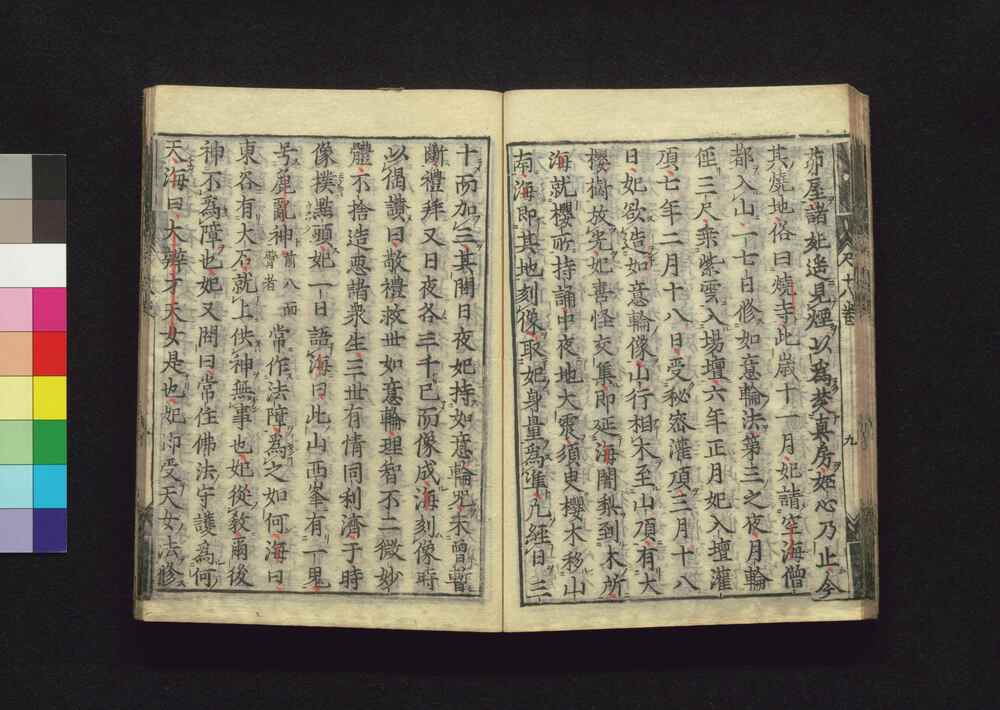 茆屋諸妣遙見煙以為焚真房妃心乃止今
其燒地俗曰燒寺此歲十一月妃請空海僧
都入山一七日修如意輪法第三之夜月輪
徑三尺乘紫雲入場壇六年正月妃入壇灌
頂七年二月十八日受秘密灌頂三月十八
日妃欲造如意輪像山行相木至山頂有大
櫻樹放光妃喜怪交集即延海闍梨到木所
海就櫻所持誦中夜地大震須臾櫻木移山
南海即其地刻像取妃身量為準凡經日三
十而加三其間日夜妃持如意輪咒未嘗暫
斷禮拜又日夜各三千已而像成海刻像時
以偈讚曰敬禮救世如意輪理智不二微妙
體不捨造惡諸衆生三世有情同利濟于時
像撲點頭妃一日語海曰此山西峯有一鬼
号麁亂神首八面臂者常作法障為之如何海曰
東谷有大石就上供神無事也妃從教爾後
神不為障也妃又問曰常住佛法守護為何
天海曰大辨才天女是也妃即受天女法修
九